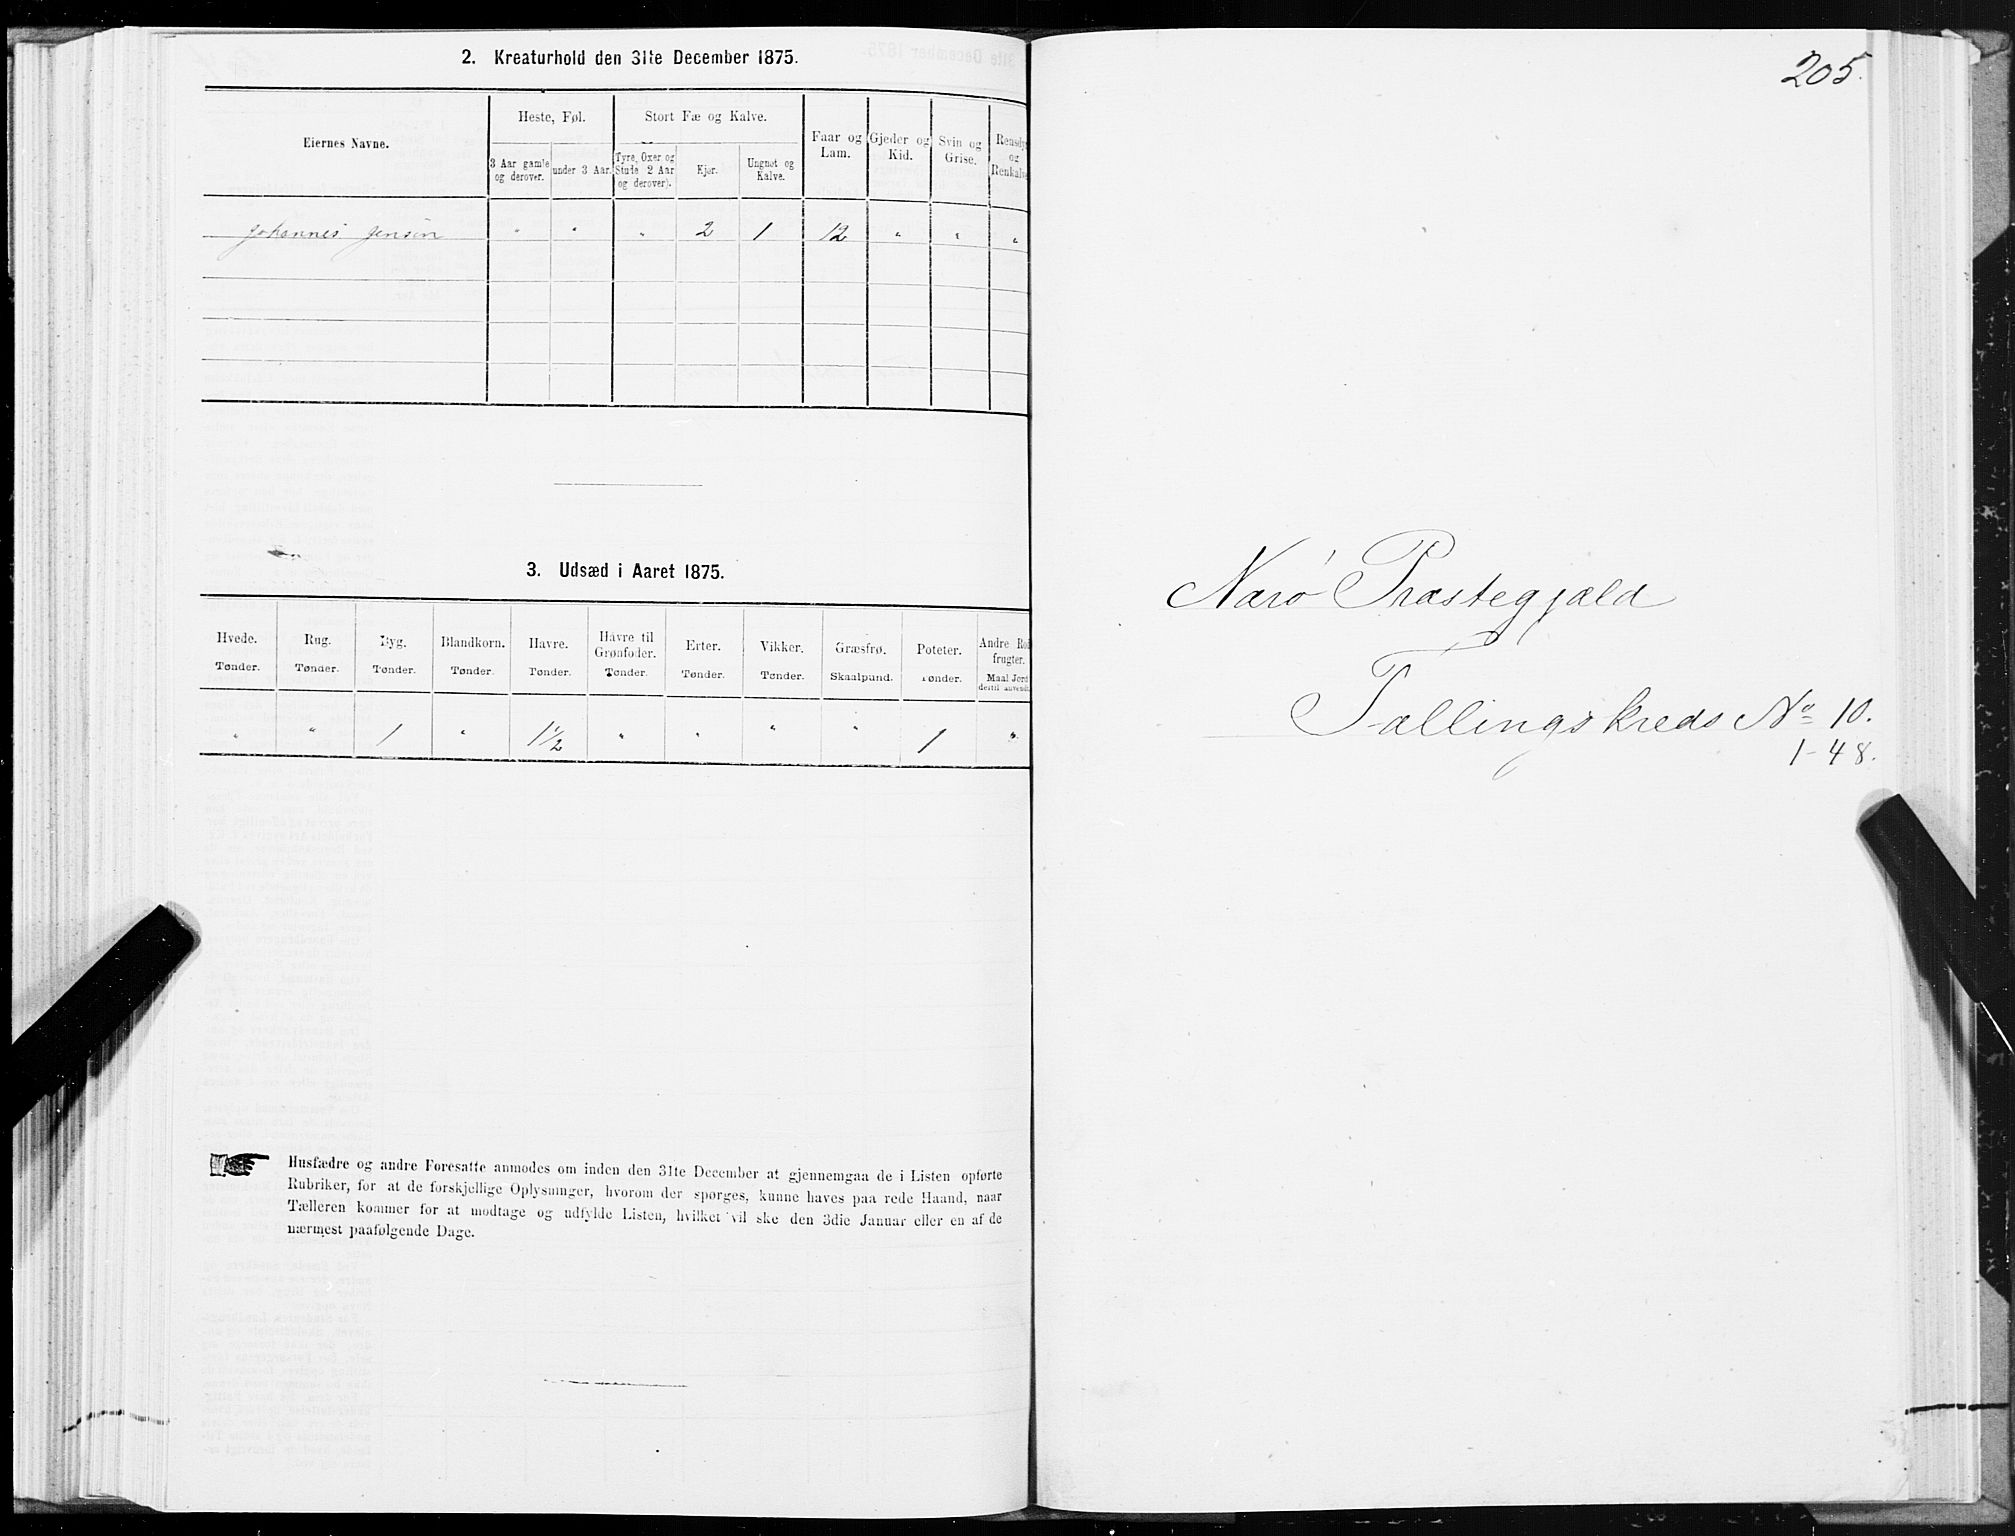 2. Kreaturhold den 31te December 1875.
Eiernes Navne.
Heste, Føl.
Stort Fæ og Kalve.
Faar og Lam.
Gjeder og Kid.
Svin og Grise.
Rensdyr og Renkalve
3 Aar gamle og derover.
under 3 Aar.
Tyre, Oxer og Stude 2 Aar og derover).
Kjør.
Ungnøt og Kalve.
Johannes Jensen " " " 2 1 12 " " "
3. Udsæd i Aaret 1875.
Hvede. Rug. Byg. Blandkorn. Havre. Havre til Grønfoder. Erter. Vikker. Græsfrø. Poteter. Andre Rodfrugter.
Tønder. Tønder. Tønder. Tønder. Tønder. Tønder. Tønder. Tønder. Skaalpund. Tønder. Maal Jord dertil anvendt.
" " 1 " 1 1/2 " " " " 1 "
Husfædre og andre Foresatte anmodes om inden den 31te December at gjennemgaa de i Listen opførte
Rubriker, for at de forskjellige Oplysninger, hvorom der spørges, kunne haves paa rede Haand, naar
Tælleren kommer for at modtage og udfylde Listen, hvilket vil ske den 3die Januar eller en af de
nærmest paafølgende Dage.
205.
Nærø Præstegjæld
Tællingskreds No 10.
1-48.